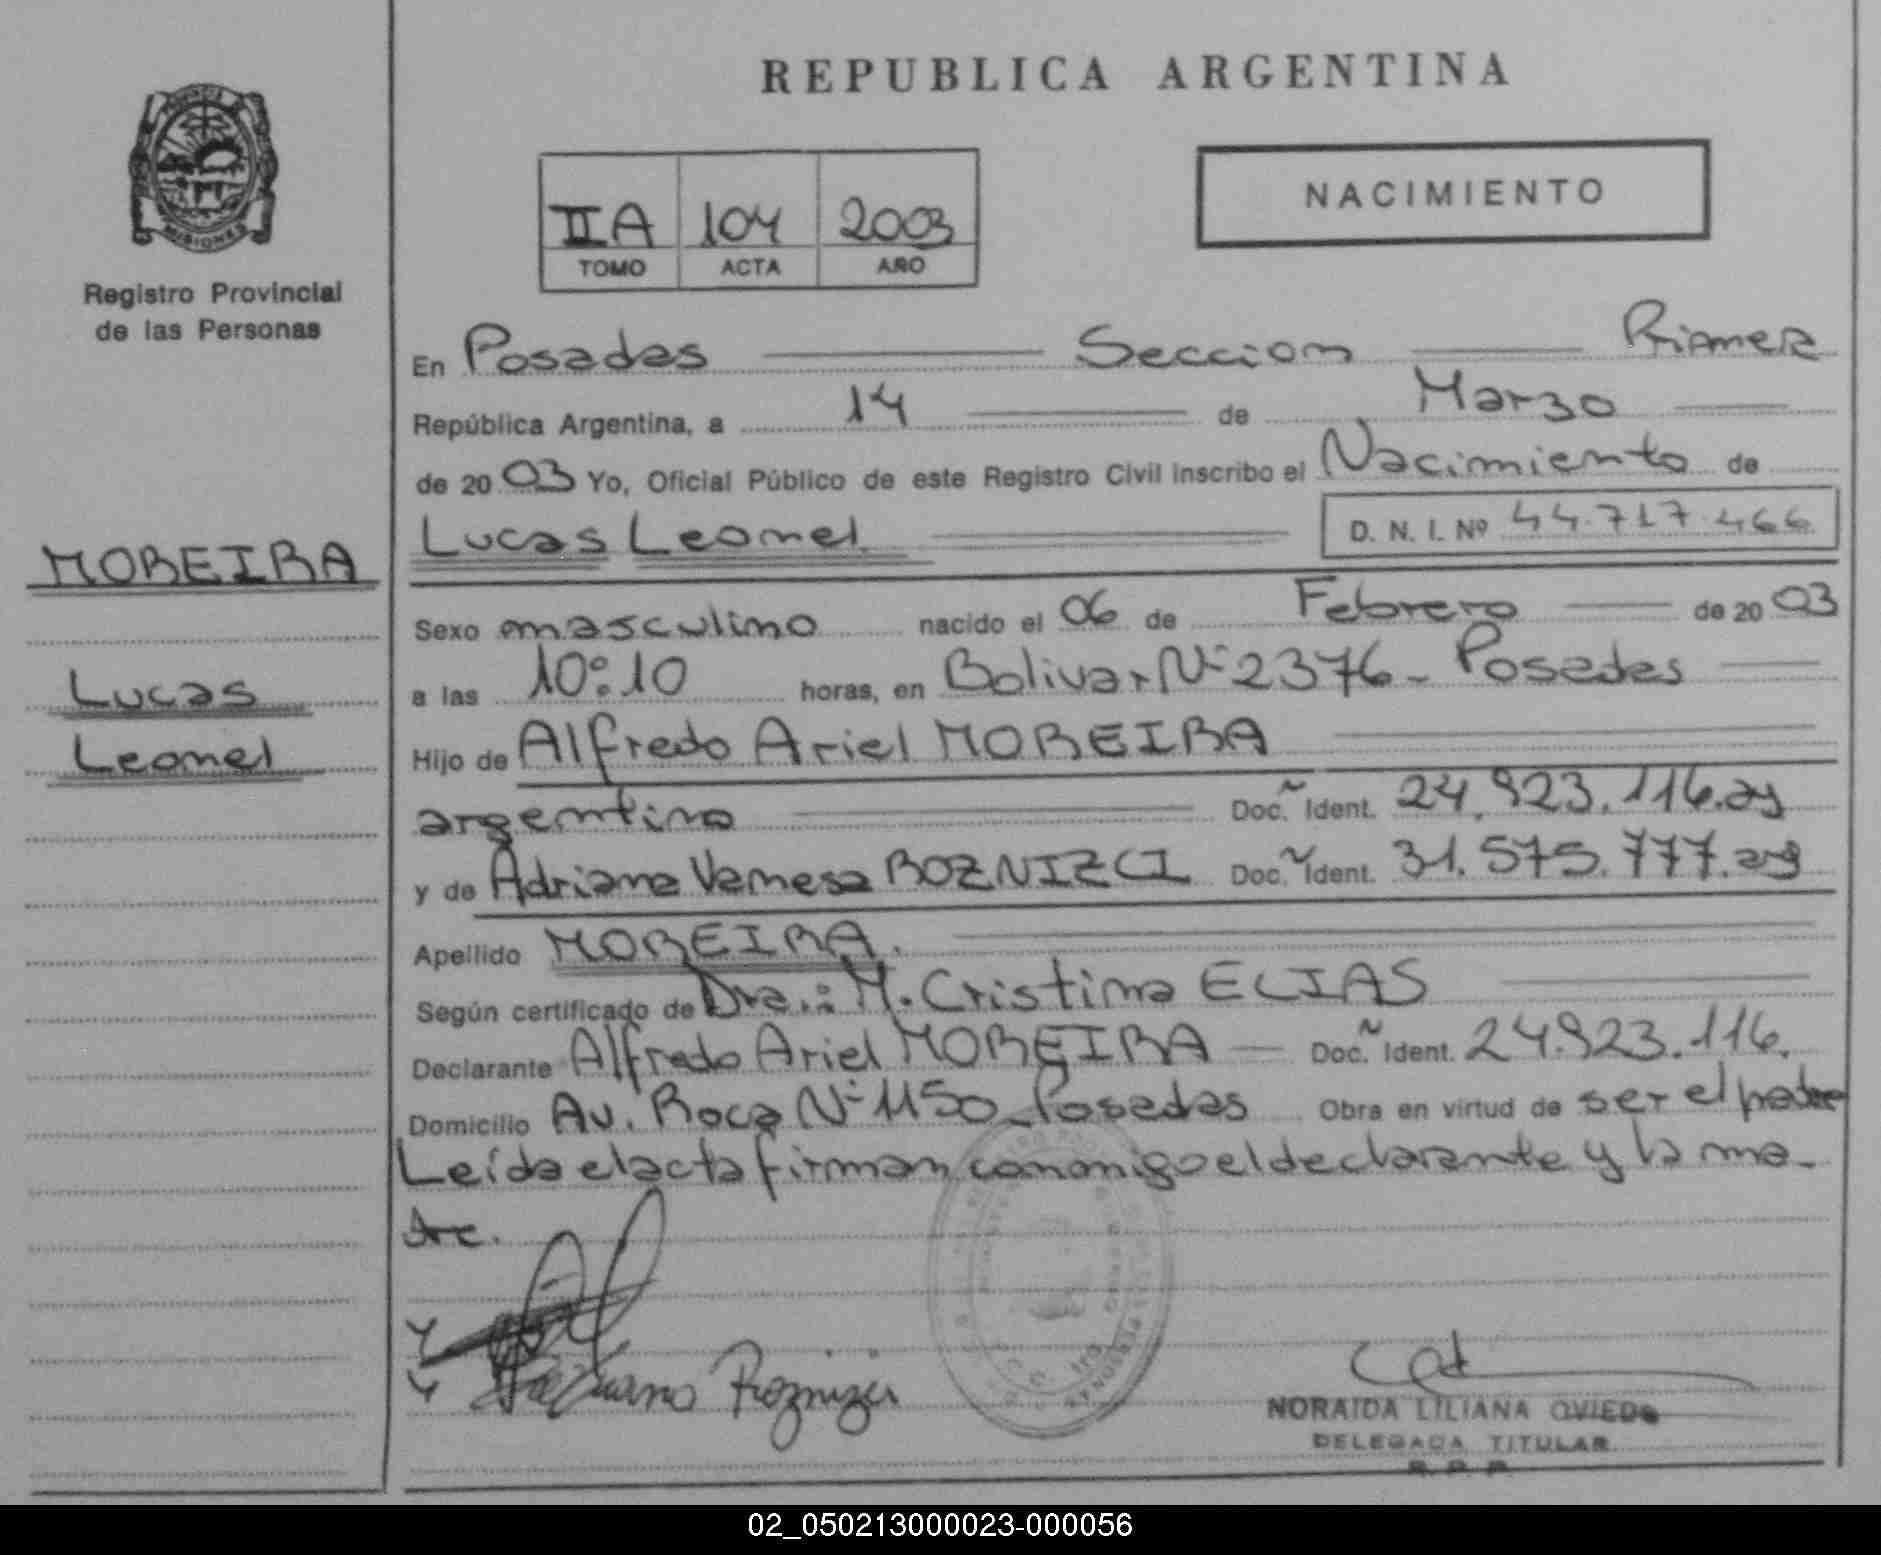 REPUBLICA ARGENTINA
MISIONES
Registro Provincial
de las Personas
NACIMIENTO
IIA 104 2003
TOMO ACTA AÑO
En Posadas Seccion Primera
República Argentina, a 14 de Marzo
de 2003 Yo, Oficial Público de este Registro Civil inscribo el Nacimiento de
Lucas Leonel D. N. I. Nº 44.717.466
MOREIRA
Lucas
Leonel
Sexo masculino nacido el 06 de Febrero de 2003
a las 10:10 horas, en Bolivar Nº 2376 - Posadas
Hijo de Alfredo Ariel MOREIRA
argentino Doc. Ident. 24.923.116.arg
y de Adriana Vanesa ROZNIZCI Doc. Ident. 31.575.777.arg
Apellido MOREIRA.
Según certificado de Dra.: M. Cristina ELIAS
Declarante Alfredo Ariel MOREIRA — Doc. Ident. 24.923.116.
Domicilio Av. Roca Nº 1150 - Posadas Obra en virtud de ser el padre
Leída el acta firman conmigo el declarante y la ma-
dre.
Roznizci
NORAIDA LILIANA OVIEDO
DELEGADA TITULAR
R. P. P.
02_050213000023-000056